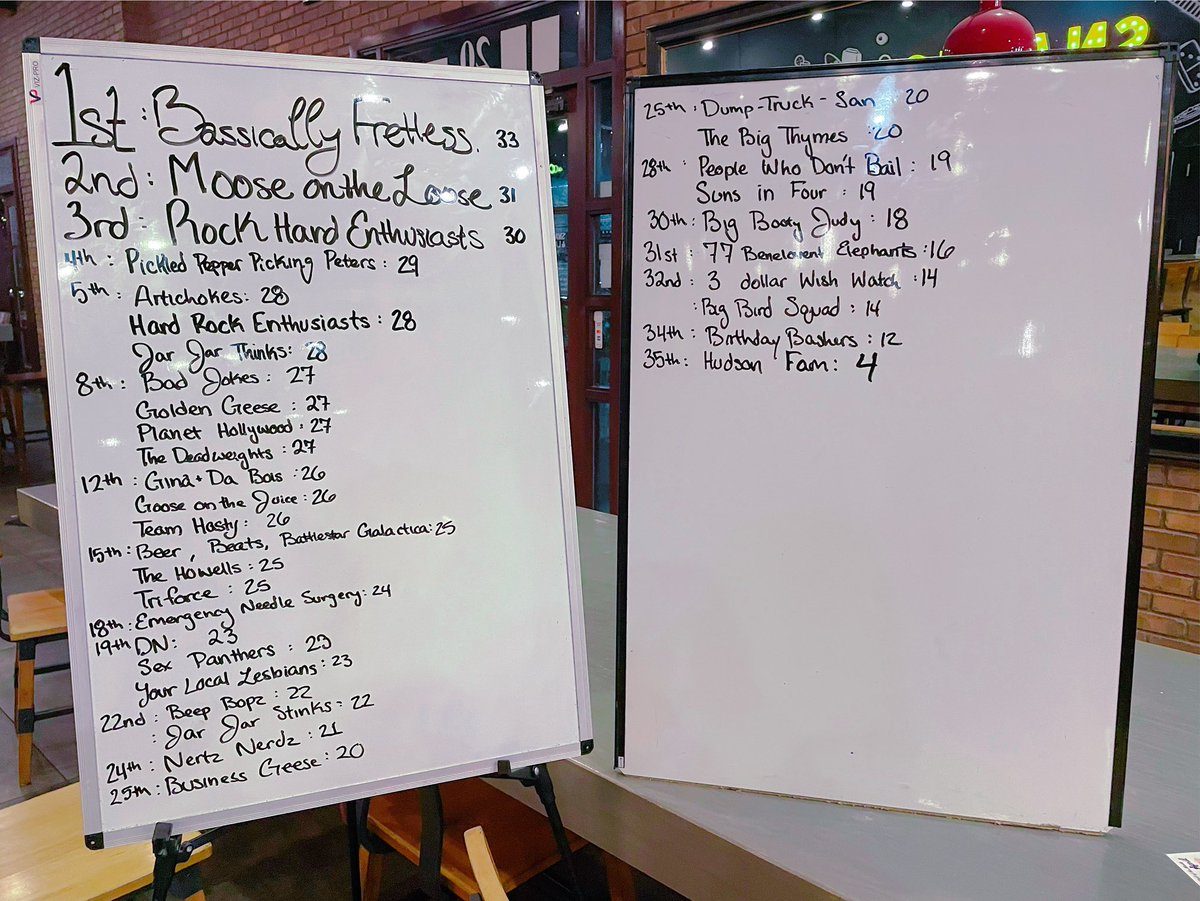 VP VIZ-PRO
1st : Bassically Fretless. 33
2nd : Moose on the Loose 31
3rd : Rock Hard Enthusiasts 30
4th : Pickled Pepper Picking Peters : 29
5th : Artichokes : 28
Hard Rock Enthusiasts : 28
Jar Jar Thinks : 28
8th : Bad Jokes : 27
Golden Geese : 27
Planet Hollywood : 27
The Deadweights : 27
12th : Gina + Da Bois : 26
Goose on the Juice : 26
Team Hasty : 26
15th : Beer, Beets, Battlestar Galactica : 25
The Howells : 25
Triforce : 25
18th : Emergency Needle Surgery : 24
19th DN : 23
Sex Panthers : 23
Your Local Lesbians : 23
22nd : Beep Bopz : 22
: Jar Jar Stinks : 22
24th : Nertz Nerdz : 21
25th : Business Geese : 20
25th : Dump-Truck-San 20
The Big Thymes : 20
28th : People Who Don't Bail : 19
Suns in Four : 19
30th : Big Booty Judy : 18
31st : 77 Benelovent Elephants : 16
32nd : 3 dollar Wish Watch : 14
: Big Bird Squad : 14
34th : Birthday Bashers : 12
35th : Hudson Fam : 4